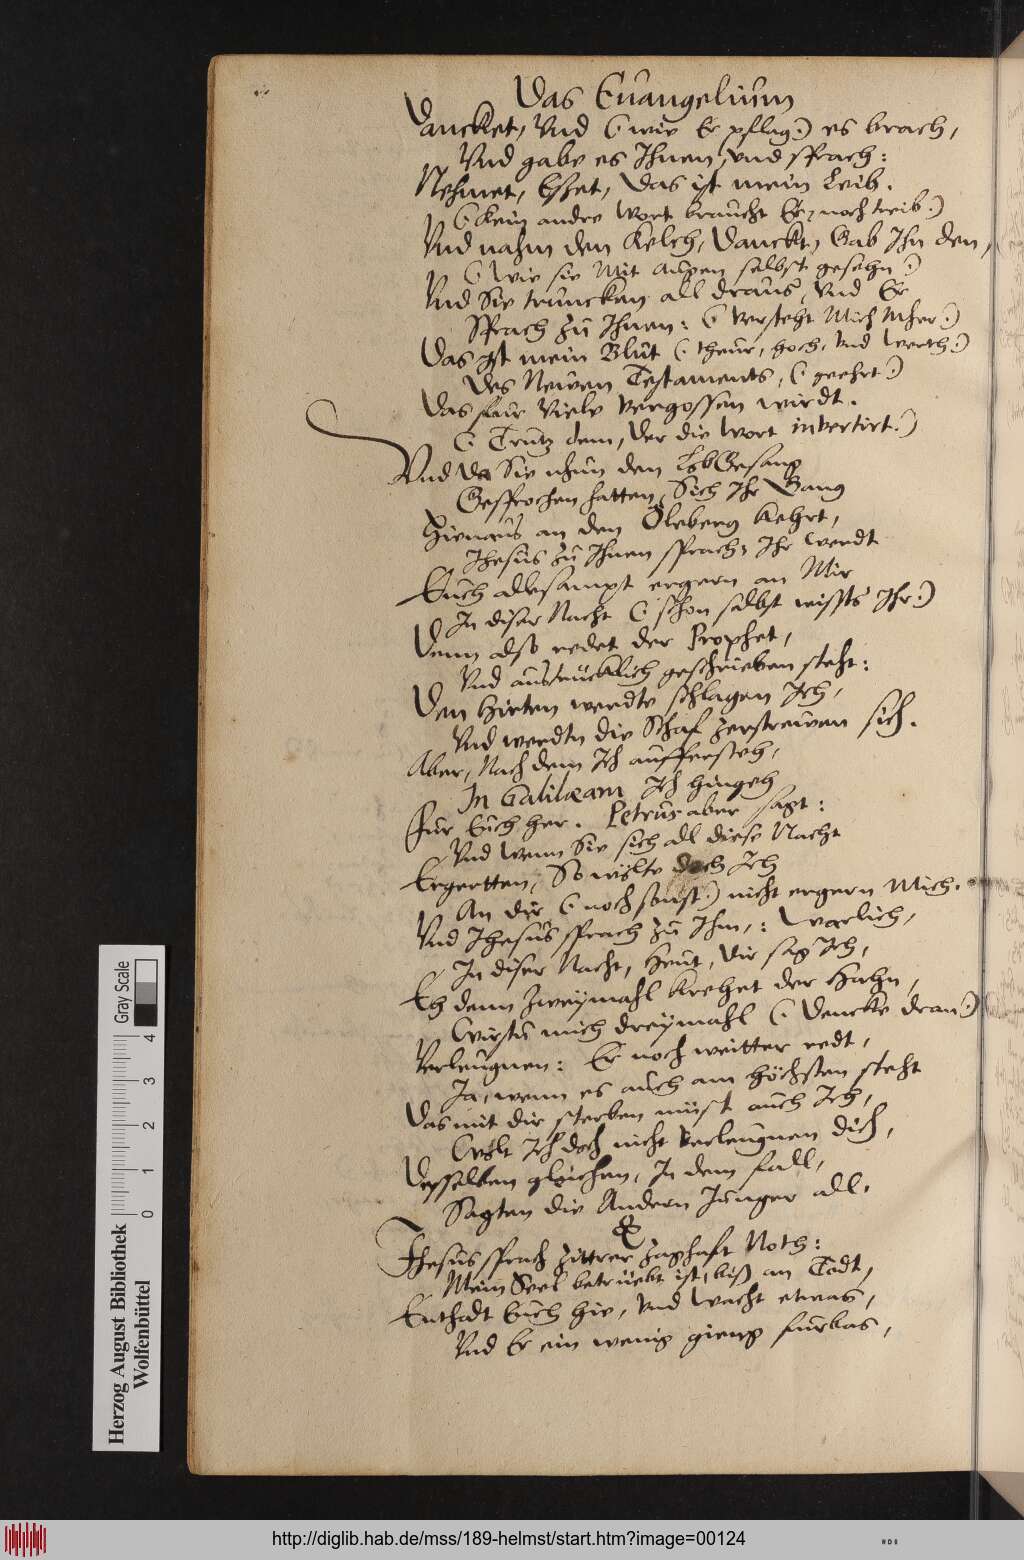 Das Euangelium
Dancket, Vnd (: wie Er pflag :) es brach,
Vnd gabe es Ihnen, vnd sprach:
Nehmet, Esset, Das ist mein Leib.
(: Kein andre Wort braucht Er, noch treib :)
Vnd nahm den Kelch, Danckt, Gab Ihn den,
(: Wie sie Mit augen selbst gesehn :)
Vnd Sie truncken all draus, Vnd Er
Sprach zu Ihnen: (: Versteht Mich Mher :)
Das Ist mein Blut (: theur, hoch, Vnd Werth :)
Des Newen Testaments, (: geehrt :)
Das fur Viele Vergossen wirdt.
(: Trutz dem, Der die Wort invertirt :)
Vnd Da Sie nhun den LobGesang
Gesprochen hatten, Sich Ihr Gang
Hienaus an den Öleberg kehrt,
Ihesus zu Ihnen sprach, Ihr Werdt
Euch allesampt ergern an Mir
In diser Nacht (: schon selbst wissts Ihr :)
Denn also redet der Prophet,
Vnd austrücklich geschrieben steht:
Den Hirten werdte schlagen Ich,
Vnd werdtn die Schaf zerstrewen sich.
Aber, Nach dem Ich auffersteh,
In Galilæam Ich hingeh
Fur Euch her. Petrus aber sagt:
Vnd Wenn Sie sich all diese Nacht
Ergertten, So wolte doch Ich
An dir (: noch sonst :) nicht ergern Mich.
Vnd Ihesus sprach zu Ihm,: Warlich,
In diser Nacht, Heut, Dir sag Ich,
Eh denn Zweymahl krehet der Hahn,
Wirstu mich dreymahl (: Dencke dran :)
Verleugnen: Er noch weitter redt,
Ja, wenn es auch am höchsten steht
Das mit dir sterben müst auch Ich,
Wolt Ich doch nicht Verleugnen dich,
Desselben gleichen, In dem fall,
Sagten die Andern Junger all.
Ihesus sprach zittrer zaghaft Noth:
Mein Seel betrüebt ist, biß an Todt,
Enthalt Euch hie, Vnd Wacht etwas,
Vnd Er ein wenig gieng furbas,
Herzog August Bibliothek
Wolfenbüttel
0 1 2 3 4
Gray Scale
http://diglib.hab.de/mss/189-helmst/start.htm?image=00124